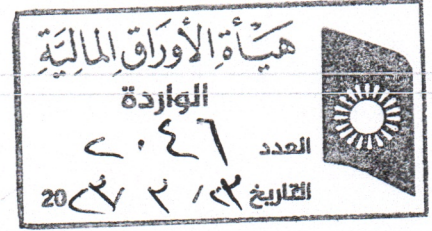 هَيْـأة الأَوْرَاقِ المَالِيَّةِ
الواردة
العدد ٢٠٤٦
التاريخ ٢٣ / ٢ / 20٢٣